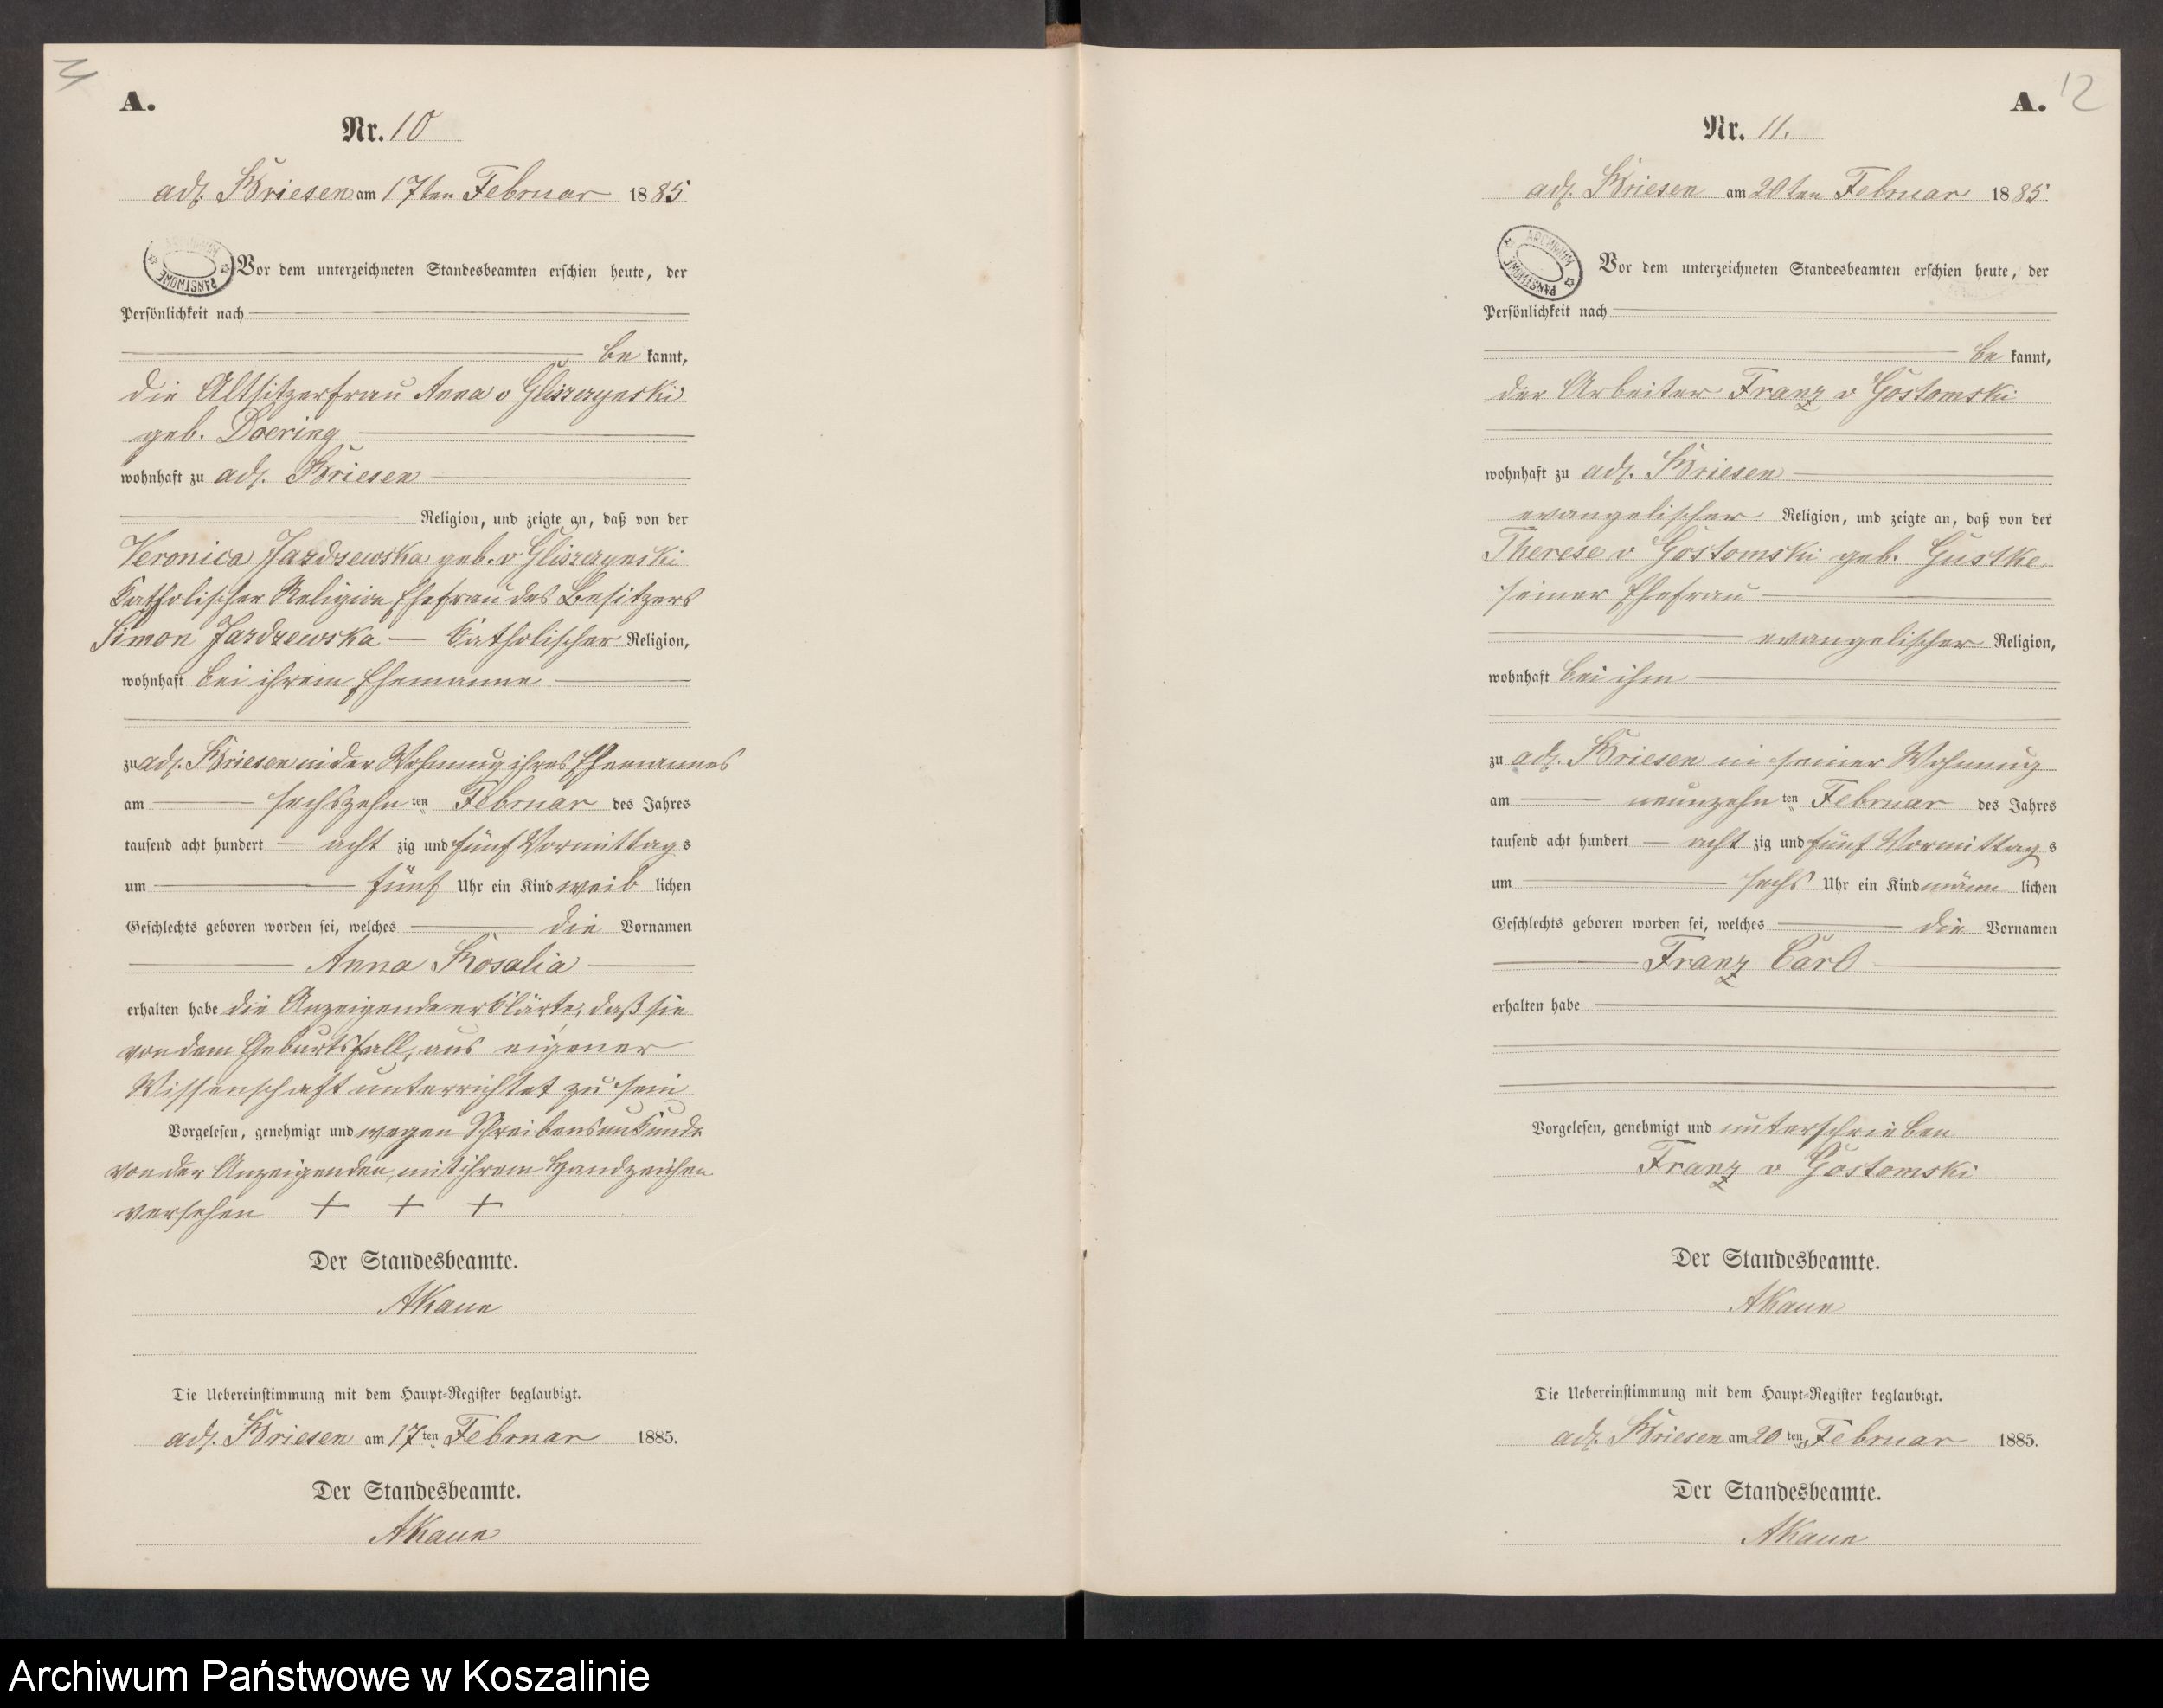 A.
Nr. 10
adl. Briesen am 17ten Februar 1885
Vor dem unterzeichneten Standesbeamten erschien heute, der
Persönlichkeit nach
be kannt,
die Altsitzerfrau Anna v Gliszczynski
geb. Doering
wohnhaft zu adl. Briesen
Religion, und zeigte an, daß von der
Veronica Jazdzewska geb. v Gliszczynski
Katholischer Religion Ehefrau des Besitzers
Simon Jazdzewska – Katholischer Religion,
wohnhaft bei ihrem Ehemanne
zu adl. Briesen in der Wohnung ihres Ehemannes
am sechszehn ten Februar des Jahres
tausend acht hundert – acht zig und fünf Vormittag s
um fünf Uhr ein Kind weib lichen
Geschlechts geboren worden sei, welches die Vornamen
Anna Rosalia
erhalten habe die Anzeigende erklärte, daß sie
von dem Geburtsfall, aus eigener
Wissenschaft unterrichtet zu sein
Vorgelesen, genehmigt und wegen Schreibensunkunde
von der Anzeigenden, mit ihrem Handzeichen
versehen + + +
Der Standesbeamte.
AKaun
Die Uebereinstimmung mit dem Haupt-Register beglaubigt.
adl. Briesen am 17 ten Februar 1885.
Der Standesbeamte.
AKaun
A. 12
Nr. 11.
adl. Briesen am 20ten Februar 1885
ARCHIWUM PAŃSTWOWE
Vor dem unterzeichneten Standesbeamten erschien heute, der
Persönlichkeit nach
be kannt,
der Arbeiter Franz v Gostomski
wohnhaft zu adl. Briesen
evangelischer Religion, und zeigte an, daß von der
Therese v Gostomski geb. Gustke,
seiner Ehefrau
evangelischer Religion,
wohnhaft bei ihm
zu adl. Briesen in seiner Wohnung
am neunzehn ten Februar des Jahres
tausend acht hundert – acht zig und fünf Vormittag s
um sechs Uhr ein Kind männ lichen
Geschlechts geboren worden sei, welches die Vornamen
Franz Carl
erhalten habe
Vorgelesen, genehmigt und unterschrieben
Franz v Gostomski
Der Standesbeamte.
AKaun
Die Uebereinstimmung mit dem Haupt-Register beglaubigt.
adl. Briesen am 20 ten Februar 1885.
Der Standesbeamte.
AKaun
Archiwum Państwowe w Koszalinie